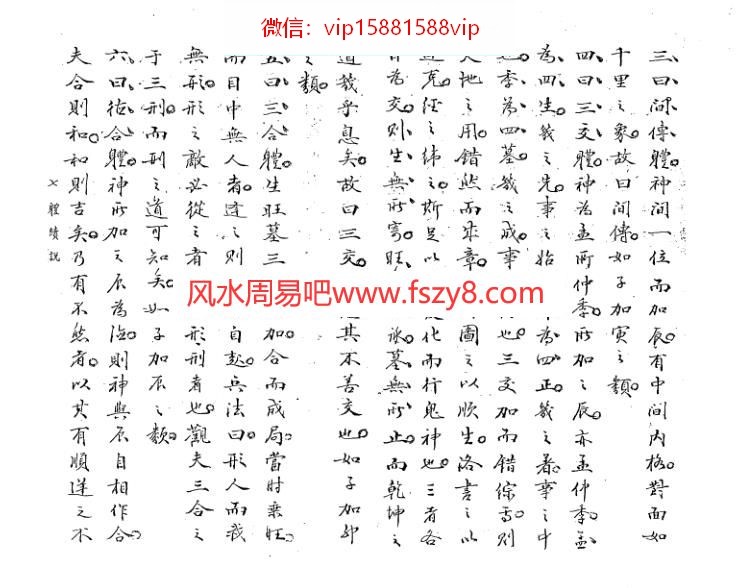 微信：vip15881588vip
三曰間傳體神間一位而加辰有中間内格對面如
千里之象故曰間傳如子加寅之類
四曰三交體神為孟所仲季所加之辰亦孟仲季孟
為四生幾之先事之始 為四正幾之著事之中
季為四墓幾之成事 也三交加而錯綜焉則
地之用錯然而成章 圖之以順生洛書之以
克經之緯之斯足以 化而行鬼神也三者各
為交則生無所寄旺 墓無所止而乾坤之
道幾乎息矣故曰三交 其不善交也如子加卯
之類
五曰三合體生旺墓三 加合而成局當时乘旺
而目中無人者過之則 自起兵法曰形人而我
無形形之敵必從之者 形刑者也觀夫三合之
于三刑而刑之道可知矣如子加辰之類
六曰德合體神所加之辰為德則神與辰自相作合
夫合則和和則吉矣乃有不然者以其有順逆之不
七體賾説
风水周易吧www.fszy8.com